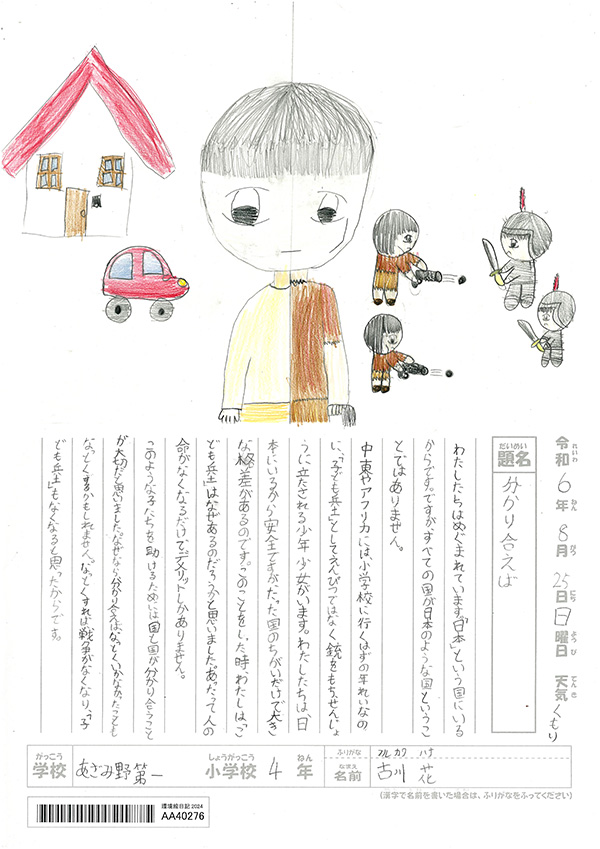 令和6年8月25日日曜日 天気くもり
れいわ ねん がつ にち ようび てんき
だいめい
題名
分かり合えば
わたしたちはめぐまれています。「日本」という国にいる
からです。ですが、すべての国が日本のような国というこ
とではありません。
中東やアフリカには、小学校に行くはずの年れいなの
に、「子ども兵士」としてえんぴつではなく銃をもち、せんじょ
うに立たされる少年少女がいます。わたしたちは、日
本にいるから安全ですが、たった国のちがいだけで大き
な格差があるのです。このことをした時わたしは、「こ
ども兵士」はなぜあるのだろうかと思いました。あったって人の
命がなくなるだけで、デメリットしかありません。
このような子たちを助けるためには国と国が分かり合うこと
が大切だと思いました。なぜなら、分かり合えば、なっとくいかなかったことも
なっとくするかもしれません。なっとくすれば戦争がなくなり、「子
ども兵士」もなくなると思ったからです。
がっこう しょうがっこう ねん ふりがな フルカワ ハナ
学校 あざみ野第一 小学校 4年 なまえ 名前 古川 花
(漢字で名前を書いた場合は、ふりがなをふってください)
環境絵日記 2024
AA40276